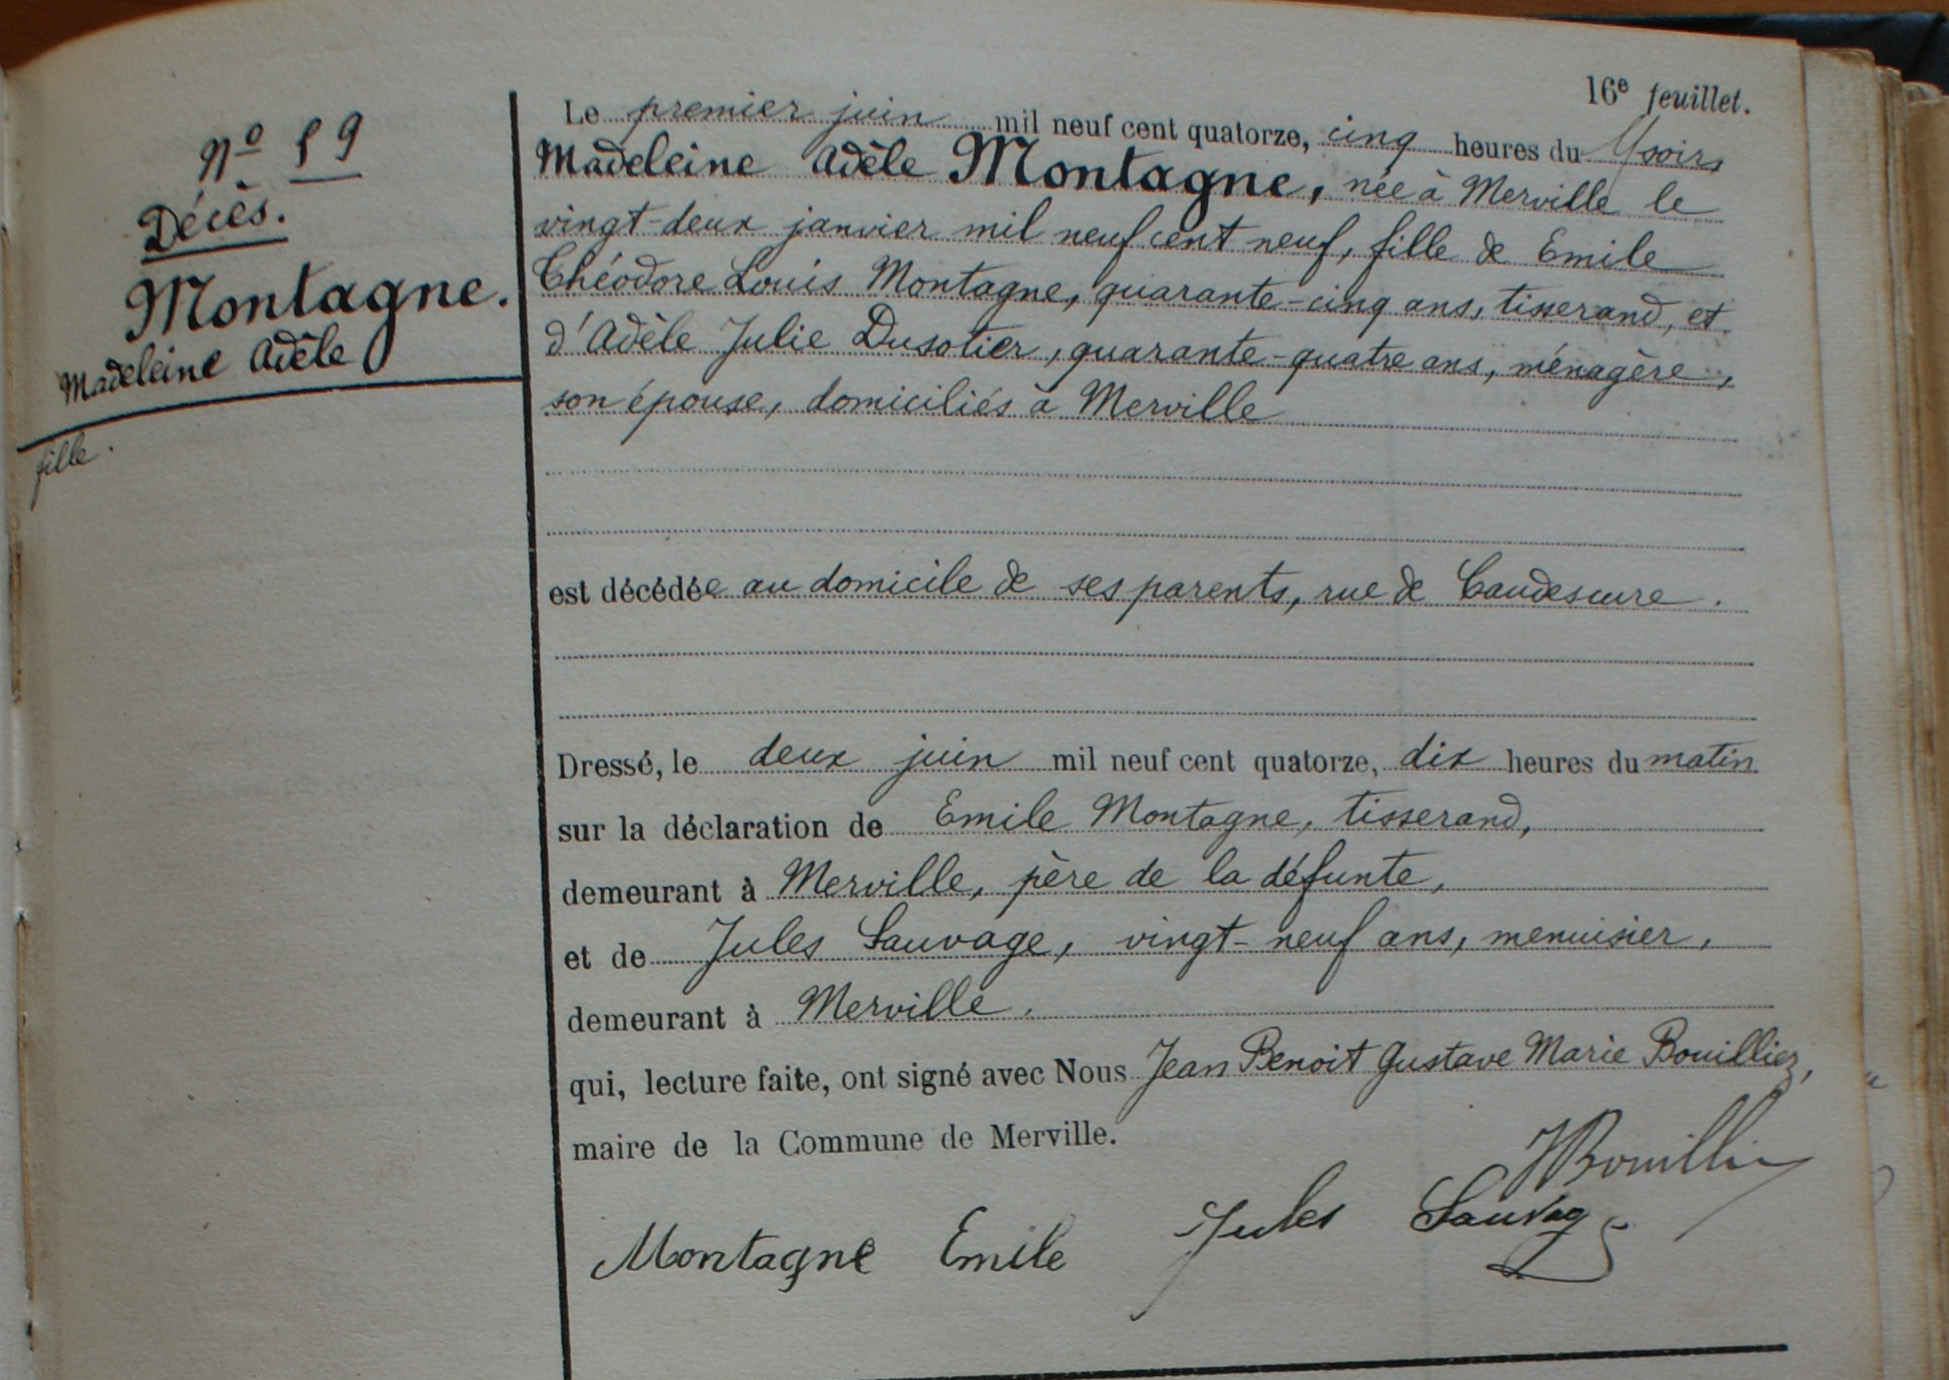 16e feuillet.
No 59
Décès.
Montagne.
Madeleine Adèle
fille.
Le premier juin mil neuf cent quatorze, cinq heures du soir,
Madeleine Adèle Montagne, née à Merville le
vingt-deux janvier mil neuf cent neuf, fille de Emile
Théodore Louis Montagne, quarante-cinq ans, tisserand, et
d'Adèle Julie Dusotier, quarante-quatre ans, ménagère,
son épouse, domiciliés à Merville
est décédée au domicile de ses parents, rue de Caudescure.
Dressé, le deux juin mil neuf cent quatorze, dix heures du matin
sur la déclaration de Emile Montagne, tisserand,
demeurant à Merville, père de la défunte,
et de Jules Sauvage, vingt-neuf ans, menuisier,
demeurant à Merville.
qui, lecture faite, ont signé avec Nous Jean Benoit Gustave Marie Bouilliez,
maire de la Commune de Merville.
Montagne Emile Jules Sauvage